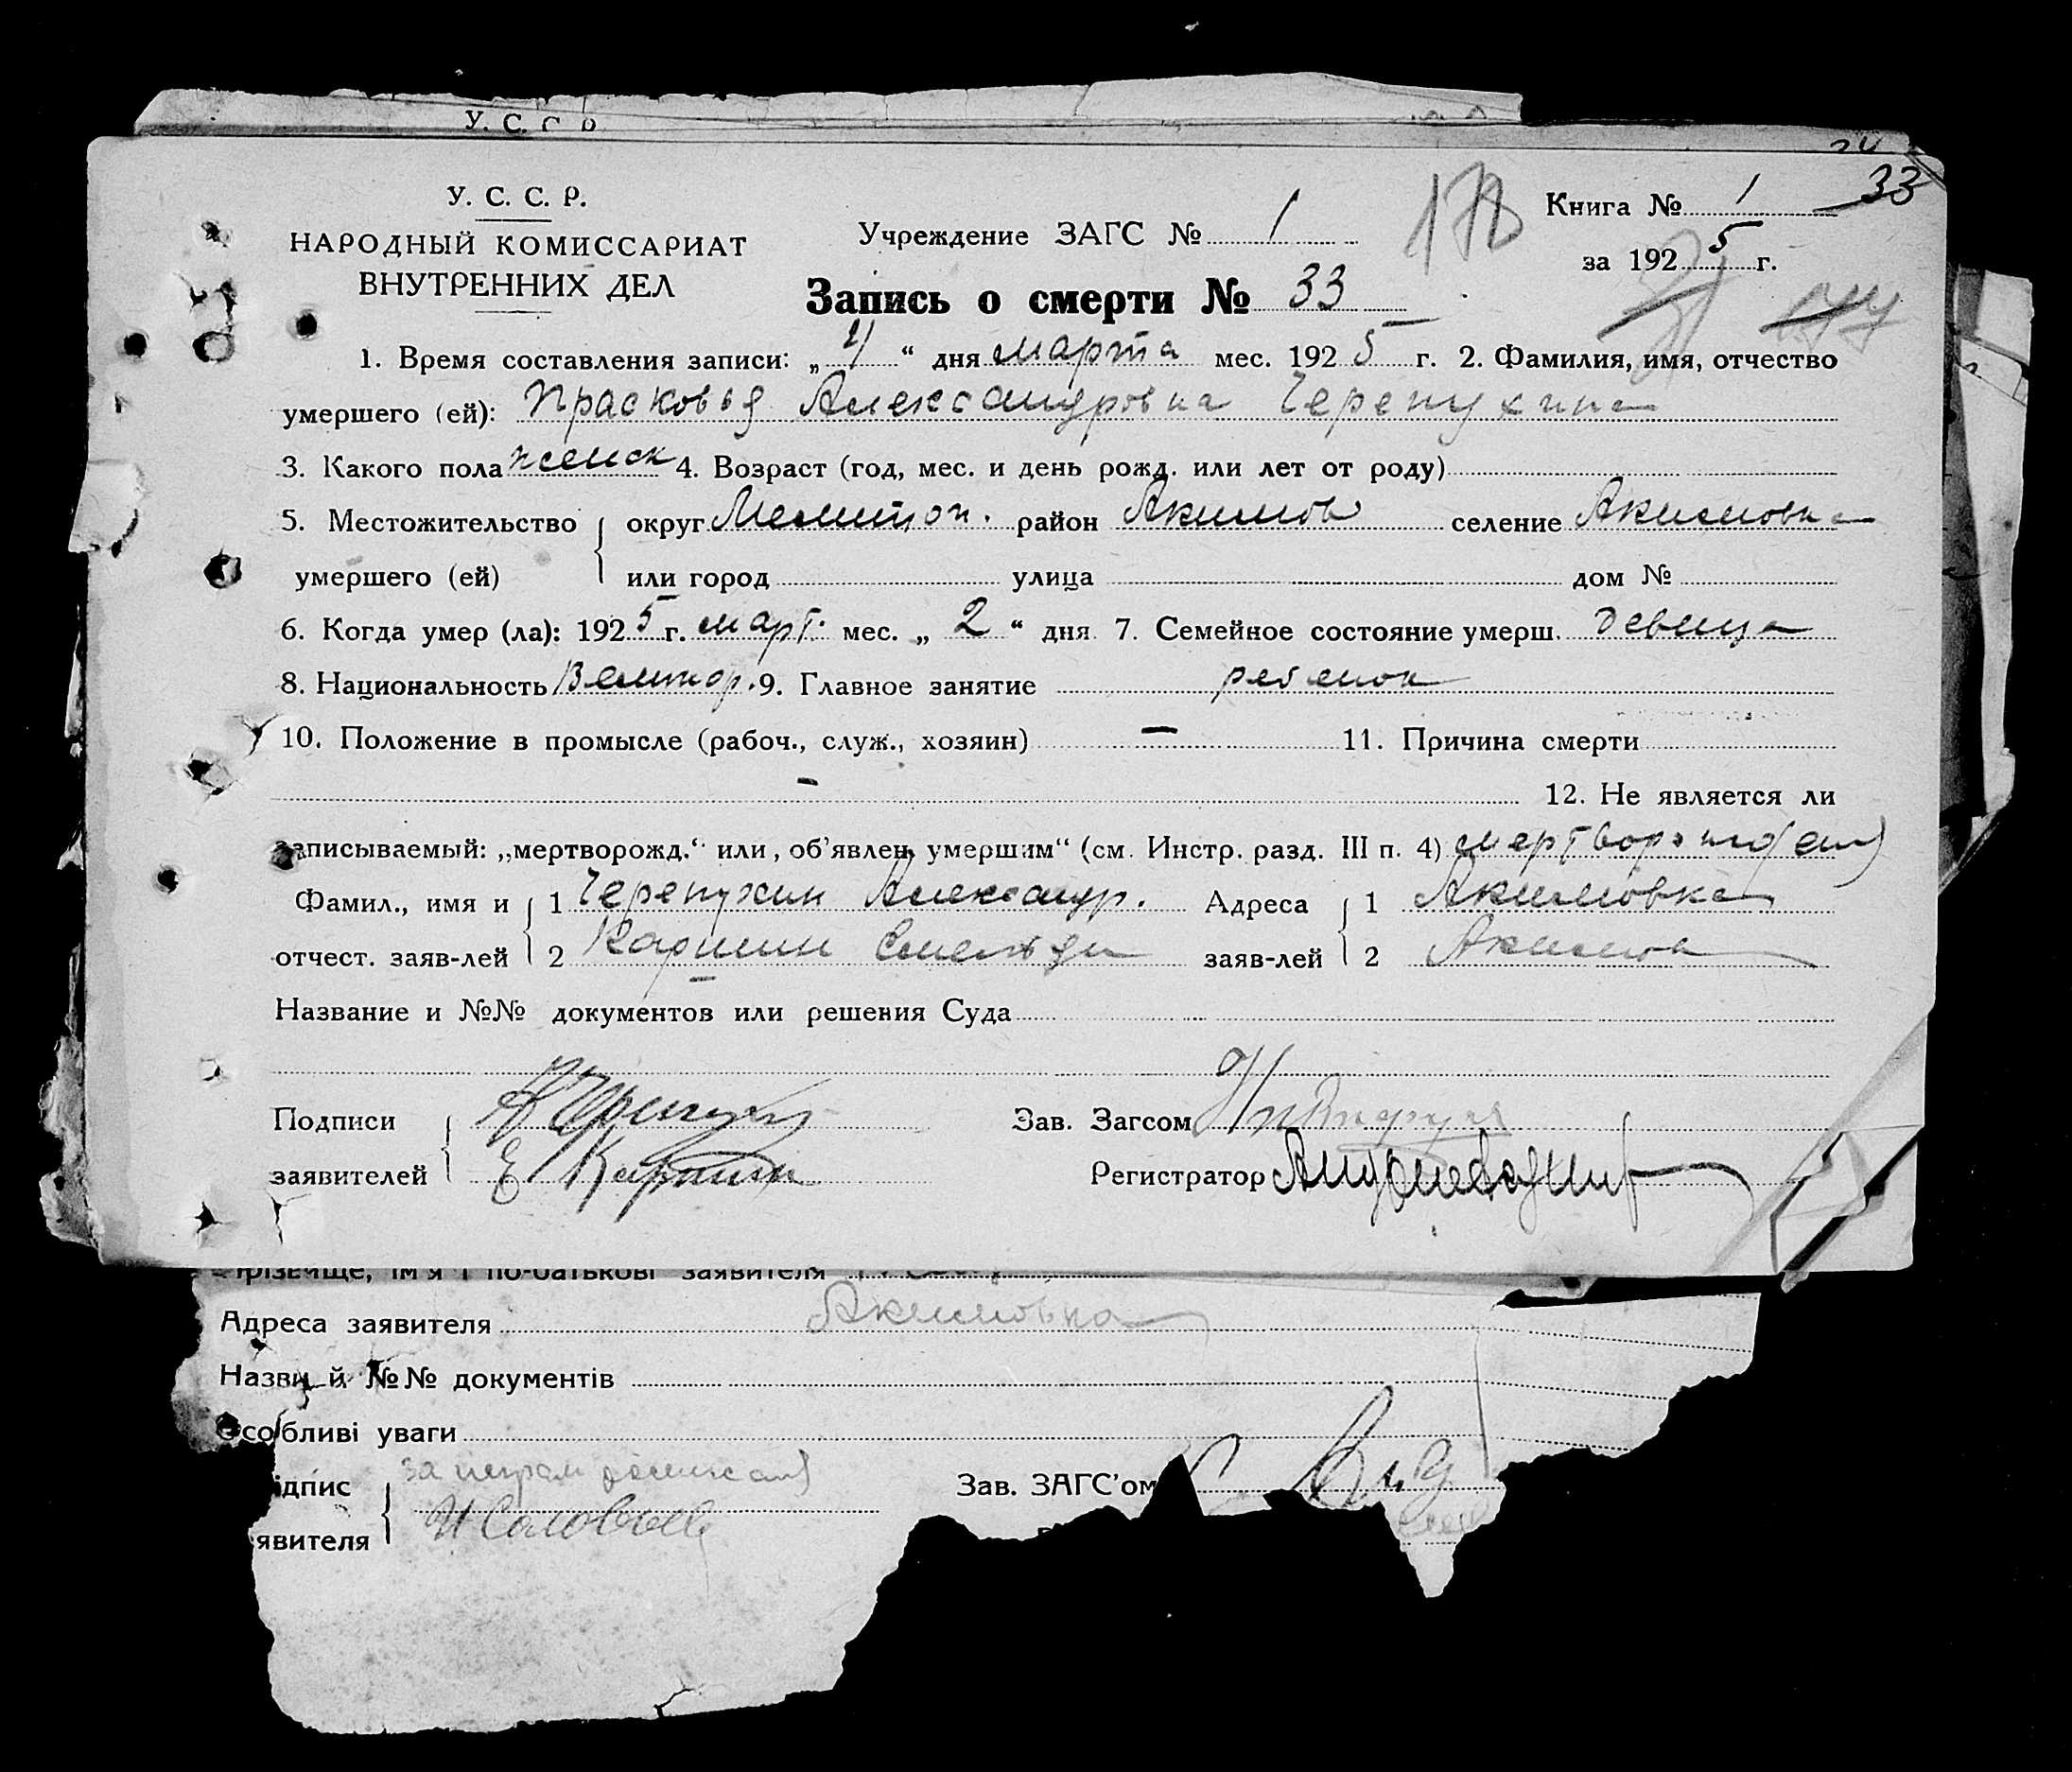 У. С. С. Р.
У. С. С. Р.
НАРОДНЫЙ КОМИССАРИАТ
ВНУТРЕННИХ ДЕЛ
Учреждение ЗАГС № 1
178
Книга № 1 33
за 1925 г.
Запись о смерти № 33
177
1. Время составления записи: „4“ дня марта мес. 1925 г. 2. Фамилия, имя, отчество
умершего (ей): Прасковья Александровна Черепухина
3. Какого пола женск 4. Возраст (год, мес. и день рожд. или лет от роду)
5. Местожительство округ Мелитоп. район Акимов селение Акимовка
умершего (ей) или город улица дом №
6. Когда умер (ла): 1925 г. март. мес. „2“ дня 7. Семейное состояние умерш. девица
8. Национальность Великор. 9. Главное занятие ребенок
10. Положение в промысле (рабоч., служ., хозяин) — 11. Причина смерти
— 12. Не является ли
записываемый: „мертворожд.“ или „об'явлен умершим“ (см. Инстр. разд. III п. 4)
Фамил., имя и 1 Черепухин Александр. Адреса 1 Акимовка
отчест. заяв-лей 2 заяв-лей 2 Акимовка
Название и №№ документов или решения Суда
Подписи Зав. Загсом
заявителей Е Каршин Регистратор
Прізвище, ім'я і по-батькові заявителя
Адреса заявителя Акимовка
Назви й №№ документів
Особливі уваги
ідпис за неграм Зав. ЗАГС'ом
явителя И Соловьев